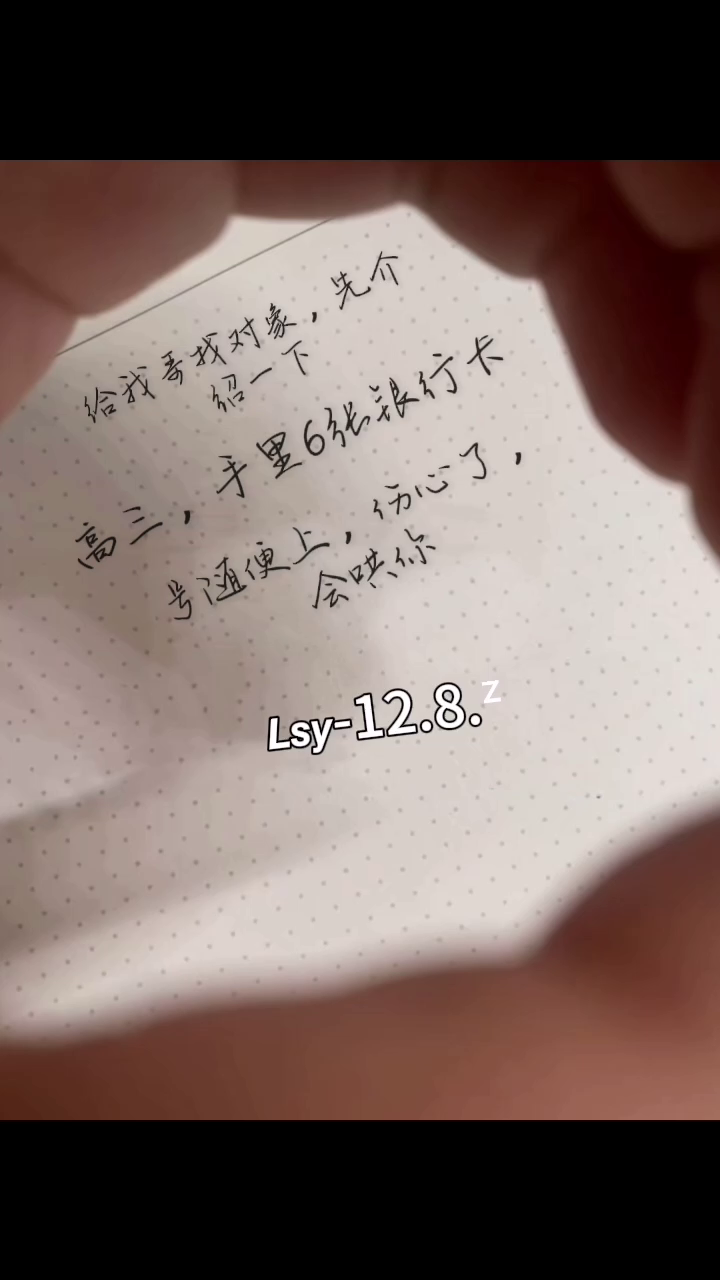 给我哥找对象，先介
绍一下
高三，手里6张银行卡
号随便上，伤心了，
会哄你
Lsy-12.8.z